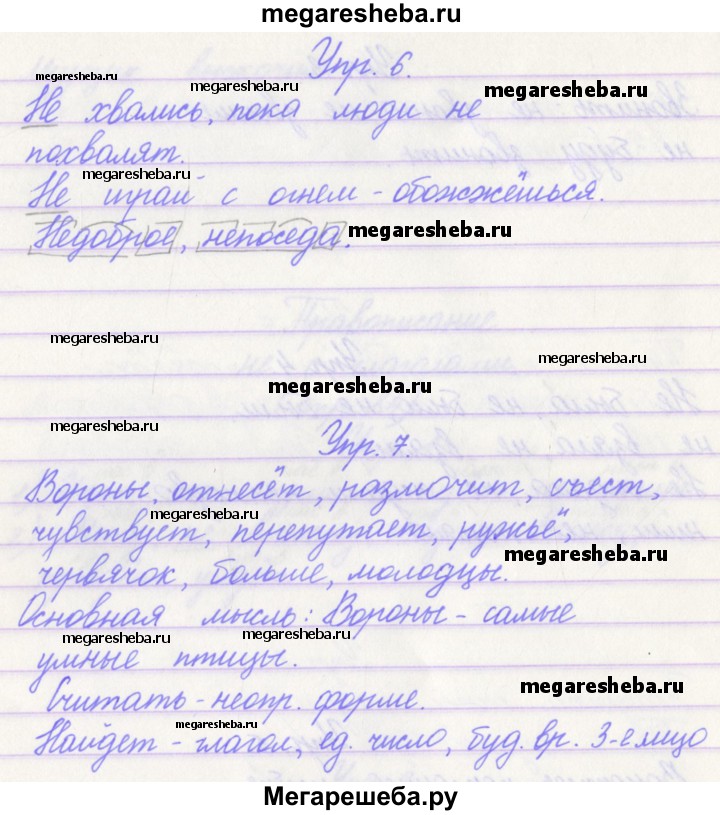 megaresheba.ru
Упр. 6.
megaresheba.ru
Не хвались, пока люди не
megaresheba.ru
похвалят.
megaresheba.ru
Не играй с огнем - обожжёшься.
Недоброе, непоседа.
megaresheba.ru
megaresheba.ru
megaresheba.ru
megaresheba.ru
megaresheba.ru
Упр. 7.
Вороны, отнесёт, размочит, съест,
megaresheba.ru
чувствует, перепутает, ружьё,
megaresheba.ru
червячок, больше, молодцы.
Основная мысль: Вороны - самые
megaresheba.ru
megaresheba.ru
умные птицы.
Считать - неопр. форме.
megaresheba.ru
megaresheba.ru
Найдет - глагол, ед. число, буд. вр. 3-е лицо
Мегарешеба.ру